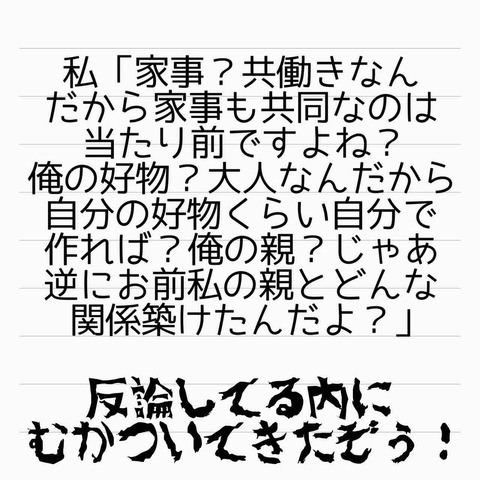 私「家事？共働きなん
だから家事も共同なのは
当たり前ですよね？
俺の好物？大人なんだから
自分の好物くらい自分で
作れば？俺の親？じゃあ
逆にお前私の親とどんな
関係築けたんだよ？」
反論してる内に
むかついてきたぞぅ！